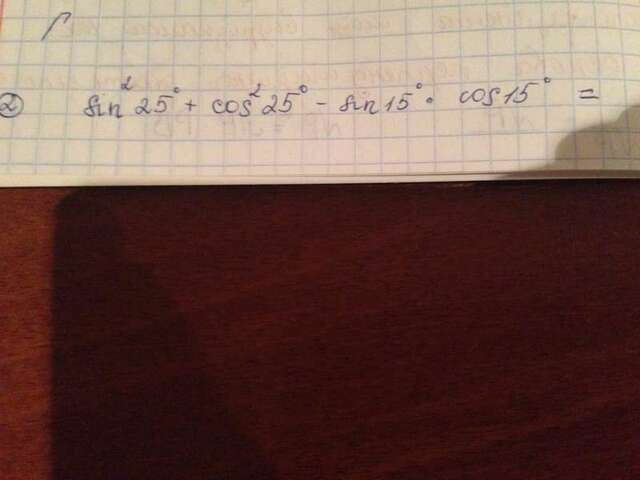 ② sin² 25° + cos² 25° - sin 15° · cos 15° =